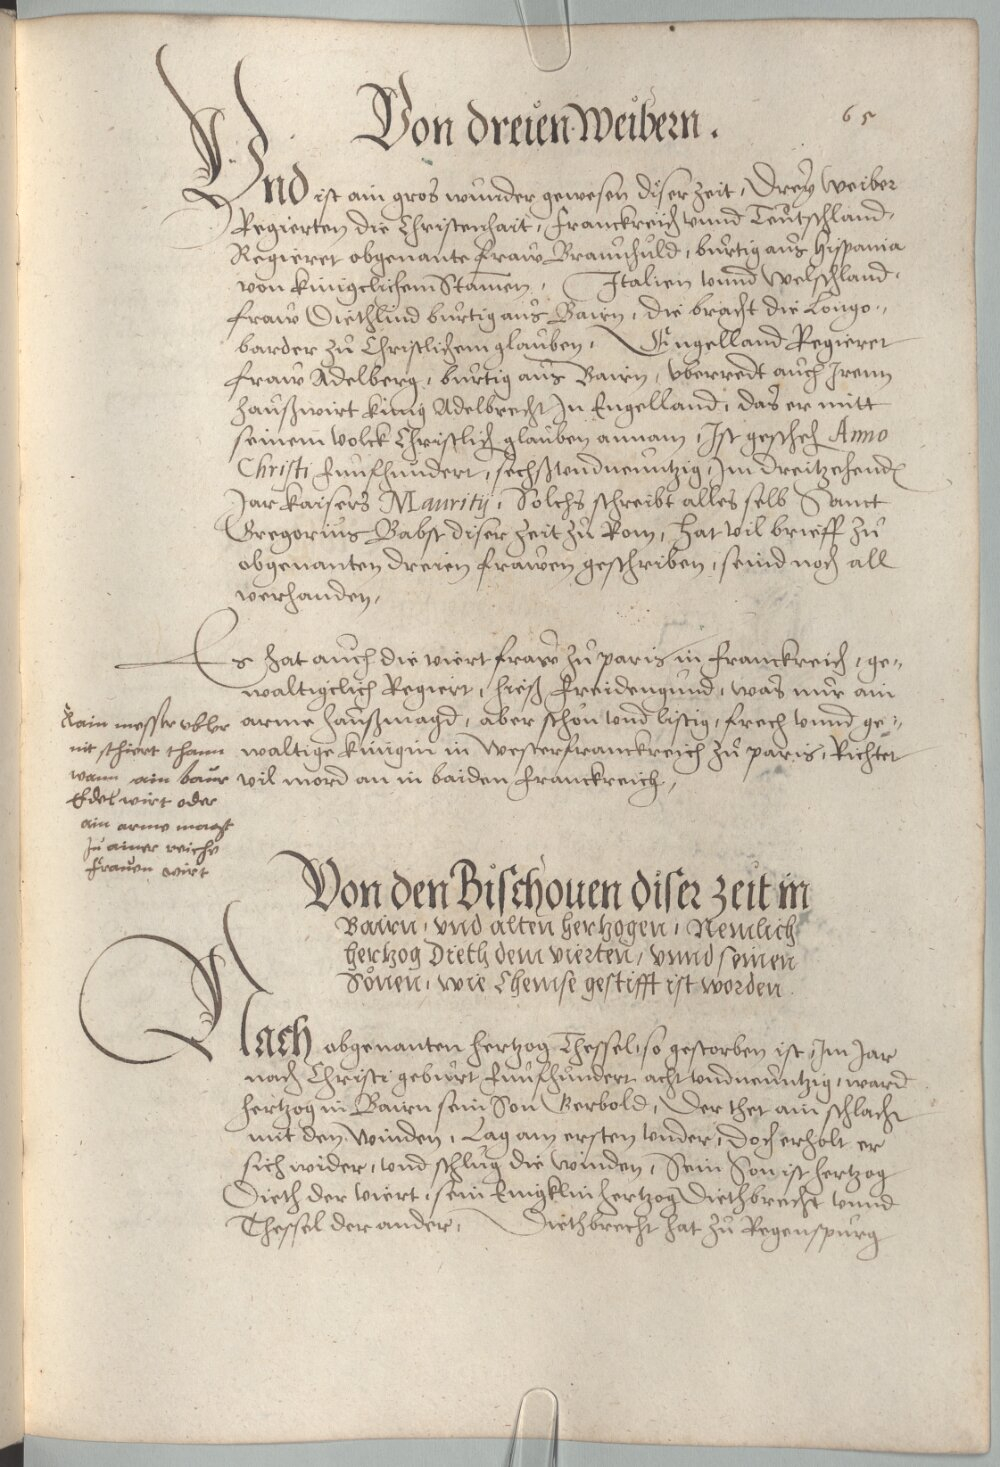 65
Von dreien Weibern.
Vnd ist ain gros wunder gewesen diser zeit, Drey weiber
Regierten die Christenhait, Franckreich vnnd Teutschland,
Regieret obgenante fraw Braunhuld, burtig aus Hispania
von kuniglichem Stamen, Italien vnnd Welschland,
fraw Diethlind burtig aus Bairn, die bracht die Longo,,
barder zu Christlichem glauben, Engelland Regieret
fraw Adelberg, burtig aus Bairn, vberredt auch Irenn
haußwirt kunig Adelbrecht In Engelland, das er mitt
seinem volck Christlich glauben annam, Ist gescheh Anno
Christi funfhundert, sechßvndneuntzig, Im dreitzehend
Jar kaisers Maurity, Solchs schreibt alles selb Sanct
Gregorius Babst diser zeit zu Rom, hat vil brieff zu
obgenanten dreien frawen geschriben, seind noch all
verhanden,
Es hat auch die viert fraw zu paris in Franckreich, ge,,
waltigclich Regiert, hieß Freidengund, was nur ain
arme haußmagd, aber schön vnd listig, frech vnnd ge,,
waltige kunigin in Westerfranckreich zu paris, Richtet
vil mord an in baiden Franckreich,
Kain messer vbler
nit schiert dann
wann ain baur
Edel wirt oder
ain arme magt
zu ainer reiche
frauen wirt
Von den Bischouen diser zeit in
Bairn, vnd alten hertzogen, Nemlich
hertzog Dieth dem vierten, vnnd seinen
Sönen, wie Chemse gestifft ist worden.
Nach obgenanten hertzog Thessel, so gestorben ist, Im Jar
nach Christi geburt funfhundert acht vndneuntzig, ward
hertzog in Bairn sein Son Gerbold, Der thet ain schlacht
mit den Winden, Lag am ersten vnder, doch erholt er
sich wider, vnd schlug die Winden, Sein Son ist hertzog
Dieth der viert, sein Enigklin hertzog Diethbrecht vnnd
Thessel der ander, Diethbrecht hat zu Regenspurg